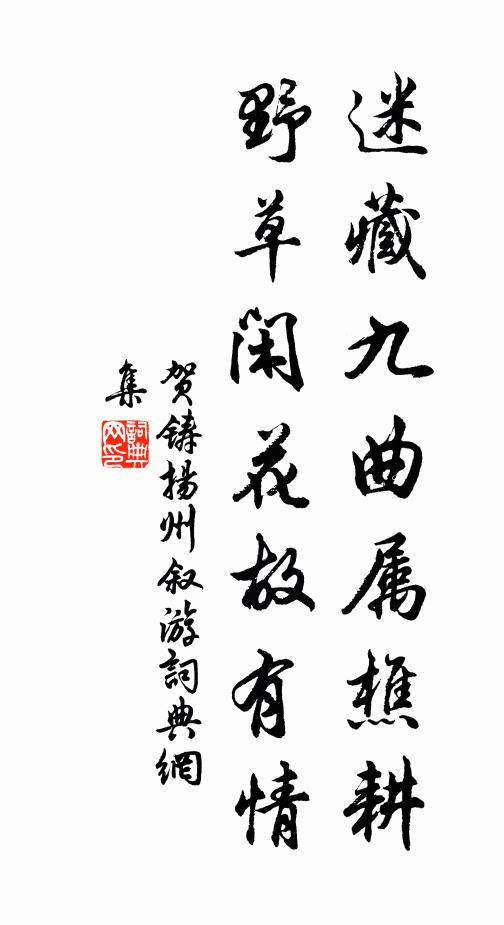 迷藏九曲属樵耕
野草闲花故有情
贺铸扬州叙游詞典網
集
詞典
网印